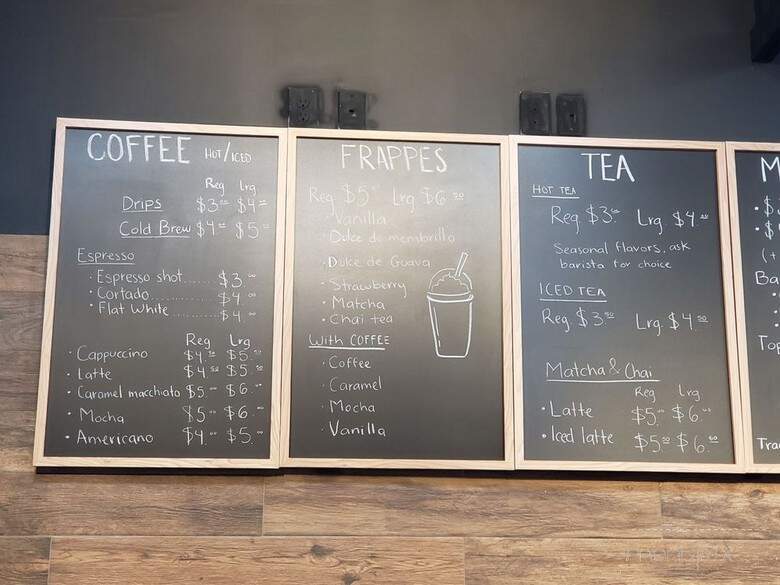 COFFEE HOT/ICED
Reg Lrg
Drips $3 $4
Cold Brew $4 $5
Espresso
· Espresso shot........ $3.00
· Cortado............... $4.00
· Flat White........... $4.00
Reg Lrg
· Cappuccino $4.50 $5.50
· Latte $4.50 $5.50
· Caramel macchiato $5.00 $6.00
· Mocha $5.00 $6.00
· Americano $4.00 $5.00
FRAPPES
Reg $5 Lrg $6.50
· Vanilla
· Dulce de membrillo
· Dulce de Guava
· Strawberry
· Matcha
· Chai tea
With COFFEE
· Coffee
· Caramel
· Mocha
· Vanilla
TEA
HOT TEA
Reg $3.50 Lrg $4.00
Seasonal flavors, ask
barista for choice
ICED TEA
Reg $3.50 Lrg $4.50
Matcha & Chai
Reg Lrg
· Latte $5.00 $6.00
· Iced latte $5.50 $6.50
M
· $
· $
(+
Ba
Top
Trad